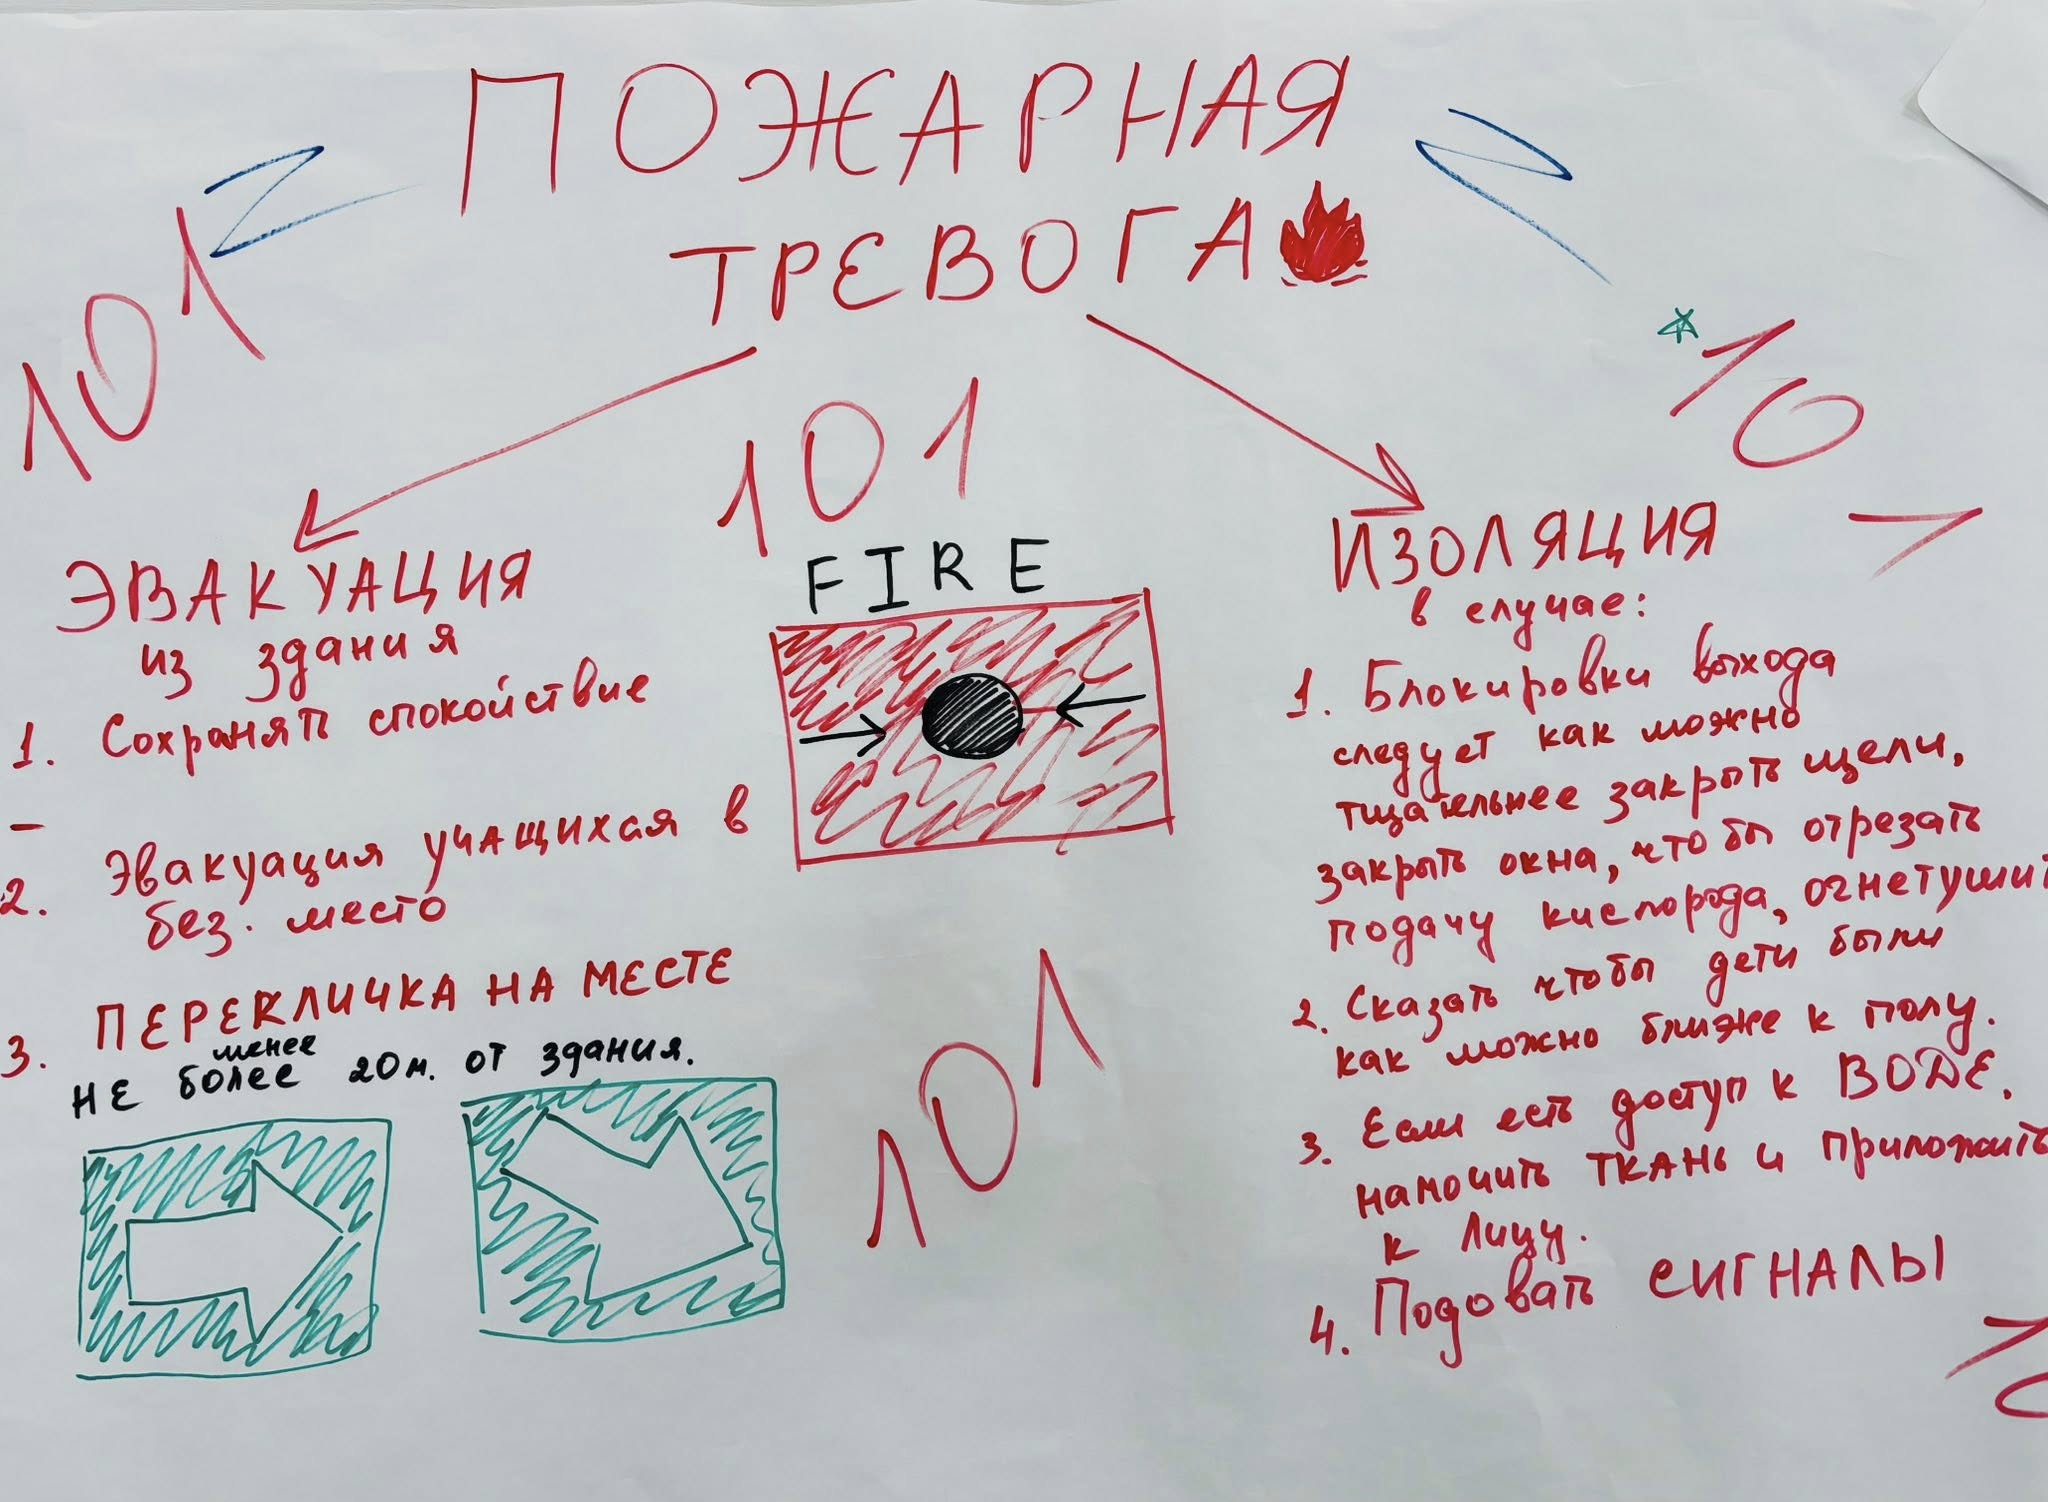 ПОЖАРНАЯ
ТРЕВОГА
101
101
101
FIRE
ЭВАКУАЦИЯ
из здания
1. Сохранять спокойствие
-
2. Эвакуация учащихая в
без. место
3. ПЕРЕКЛИЧКА НА МЕСТЕ
менее
НЕ более 20м. от здания.
101
ИЗОЛЯЦИЯ
в случае:
1. Блокировки выхода
следует как можно
тщательнее закрыть щели,
закрыть окна, что бы отрезать
подачу кислорода, огнетушит
2. Сказать чтобы дети были
как можно ближе к полу.
3. Если есть доступ к ВОДЕ.
намочить ткань и приложить
к лицу.
4. Подовать СИГНАЛЫ
10